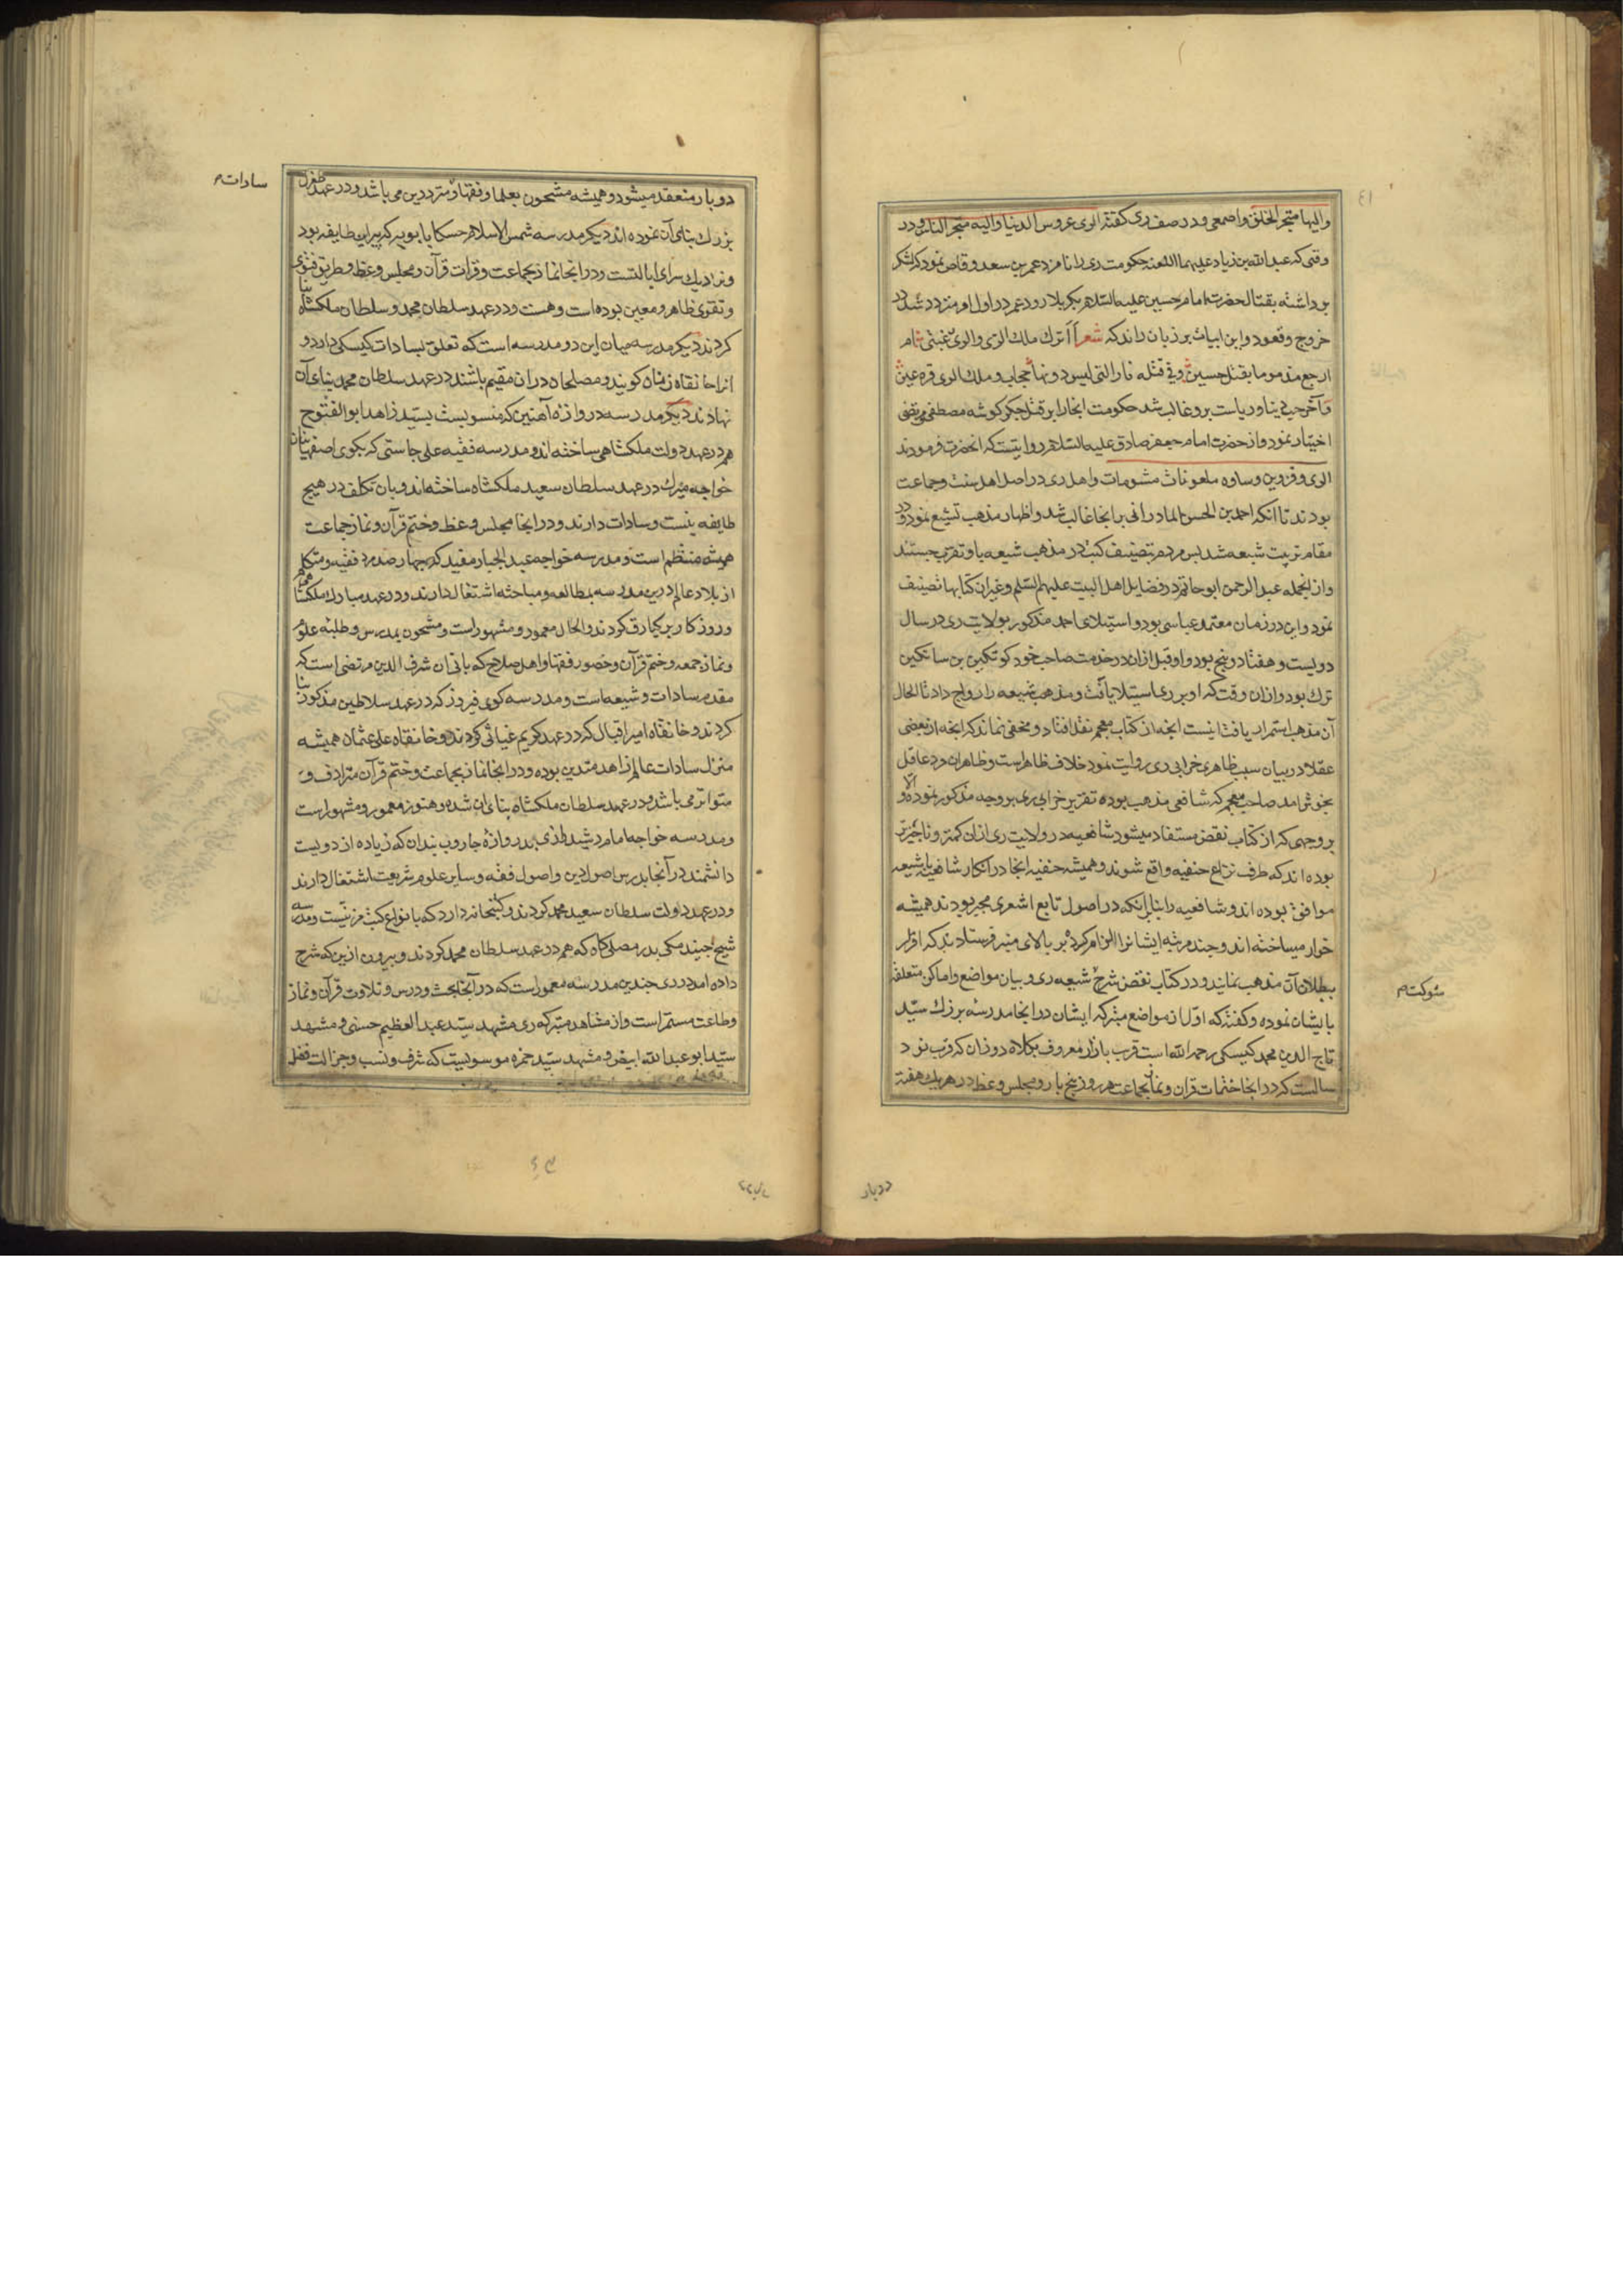 والیها متجر الخلق واصمعی ودر صف ری کفته الری عروس الدنیا والیه متجر الناس ودر
وقتی که عبدالله بن زیاد علیهما اللعنه حکومت ری را نامزد عمر بن سعد وقاص نمود که لشکر
برداشته بقتال حضرت امام حسین علیه السلام بکربلا رود عمر در اول امر متردد شد در
خروج وقعود واین ابیات بر زبان راند که شعر أأترک ملک الری والری بغیتی ام
ارجع مذموما بقتل حسین وفی قتله نار التی لیس دونها حجاب وملک الری قرة عین
وآخر حب دنیا وریاست برو غالب شد حکومت انجا را بر قتل جکر کوشه مصطفی ومرتضی
اختیار نمود واز حضرت امام جعفر صادق علیه السلام روایتست که انحضرت فرمودند
الری وقزوین وساوه ملعونات مشومات واهل ری در اصل اهل سنت وجماعت
بودند تا انکه احمد بن الحسن المادرانی بر انجا غالب شد واظهار مذهب تشیع نمود ودر
مقام تربیت شیعه شد پس مردم بتصنیف کتب در مذهب شیعه باو تقرب جستند
واز انجمله عبد الرحمن ابو حاتم در فضایل اهل البیت علیهم السلم وغیران کتابها تصنیف
نمود واین در زمان معتمد عباسی بود واستیلای احمد مذکور بولایت ری در سال
دویست وهفتاد وپنج بود واو قبل ازان در خدمت صاحب خود کوتکین بن ساتکین
ترک بود وازان وقت که او بر ری استیلا یافت ومذهب شیعه را رواج داد تا الحال
آن مذهب استمرار یافت اینست انچه از کتاب معجم نقل افتاد ومخفی نماند که انچه از بعضی
عقلا در بیان سبب ظاهری خرابی ری روایت نمود خلاف ظاهر است وظاهران مرد عاقل
بخوش امد صاحب معجم که شافعی مذهب بوده تقریر خرابی ری بر وجه مذکور نموده والا
بروجهی که از کتاب نقض مستفاد میشود شافعیه در ولایت ری ازان کمتر وناچیزتر
بوده اند که طرف نزاع حنفیه واقع شوند وهمیشه حنفیه انجا در انکار شافعیه با شیعه
موافق بوده اند وشافعیه را بنا بر انکه در اصول تابع اشعری مجبر بودند همیشه
خوار میساخته اند وچند مرتبه ایشانرا الزام کرده بر بالای منبر فرستادند که اقرار
ببطلان آن مذهب نمایند ودر کتاب نقض شرح شیعه ری وبیان مواضع واماکن متعلقه
بایشان نموده وکفته که اول از مواضع متبرکه ایشان در انجا مدرسه بزرک سید
تاج الدین محمد کیسکی رحمه الله است قرب بازار معروف بکلاه دوزان که قرب نود
سالست که در انجا ختمات قران ونماز بجماعت هر روز پنج بار ومجلس وعظ در هر یک هفته
شوکت م
دوبار
دوبار منعقد میشود وهمیشه مشحون بعلما وفقها ومترددین می باشد ودر عهد طغرل
بزرک بنای آن نموده اند دیکر مدرسه شمس الاسلام حسکا بابویه که پیر این طایفه بود
ونزدیک سرای ایالتست ودر انجا نماز بجماعت وقرات قرآن ومجلس وعظ وطریق فتوی
وتقوی ظاهر ومعین بوده است وهست ودر عهد سلطان محمد وسلطان ملکشاه بنا
کردند دیکر مدرسه میان این دو مدرسه است که تعلق بسادات کیسکی دارد و
انرا خانقاه زنان کویند ومصلحان دران مقیم باشند در عهد سلطان محمد بنای آن
نهادند دیکر مدرسه دروازه آهنین که منسوبست بسید زاهد ابو الفتوح
هم در عهد دولت ملکشاهی ساخته اند ومدرسه فقیه علی جاستی که بکوی اصفهانیان
خواجه میرک در عهد سلطان سعید ملکشاه ساخته اند وبان تکلف در هیچ
طایفه نیست وسادات دارند ودر انجا مجلس وعظ وختم قرآن ونماز جماعت
همیشه منتظم است ومدرسه خواجه عبد الجبار مفید که چهار صد مرد فقیه ومتکلم
از بلاد عالم درین مدرسه بمطالعه ومباحثه اشتغال دارند ودر عهد مبارک ملکشاهی
وروزکار برکیارق کردند والحال معمور ومشهور است ومشحون بمدرس وطلبه علوم
ونماز جمعه وختم قرآن وحضور فقها واهل صلاح که بانی ان شرف الدین مرتضی است که
مقدم سادات وشیعه است ومدرسه کوی فیروز که در عهد سلاطین مذکور بنا
کردند وخانقاه امیر اقبال که در عهد کریم غیاثی کردند وخانقاه علی عثمان همیشه
منزل سادات عالم زاهد متدین بوده ودر انجا نماز بجماعت وختم قرآن مترادف و
متواتر می باشد ودر عهد سلطان ملکشاه بنای ان شده وهنوز معمور ومشهور است
ومدرسه خواجه امام رشید رازی بدر وازه جاروب بندان که زیاده از دویست
دانشمند در آنجا بدرس اصول دین واصول فقه وسایر علوم شریعت اشتغال دارند
ودر عهد دولت سلطان سعید محمد کردند وکتبخانه دارد که بانواع کتب مزینست ومدرسه
شیخ جنید مکی بدر مصلی کاه که هم در عهد سلطان محمد کردند وبیرون ازین که شرح
داده امد در ری چندین مدرسه معمور است که در آنجا بحث ودرس وتلاوت قرآن ونماز
وطاعت مستمر است واز مشاهد متبرکه ری مشهد سید عبد العظیم حسنی ومشهد
سید ابو عبد الله ابیض ومشهد سید حمزه موسویست که شرف ونسب وجزالت فضل
سادات م